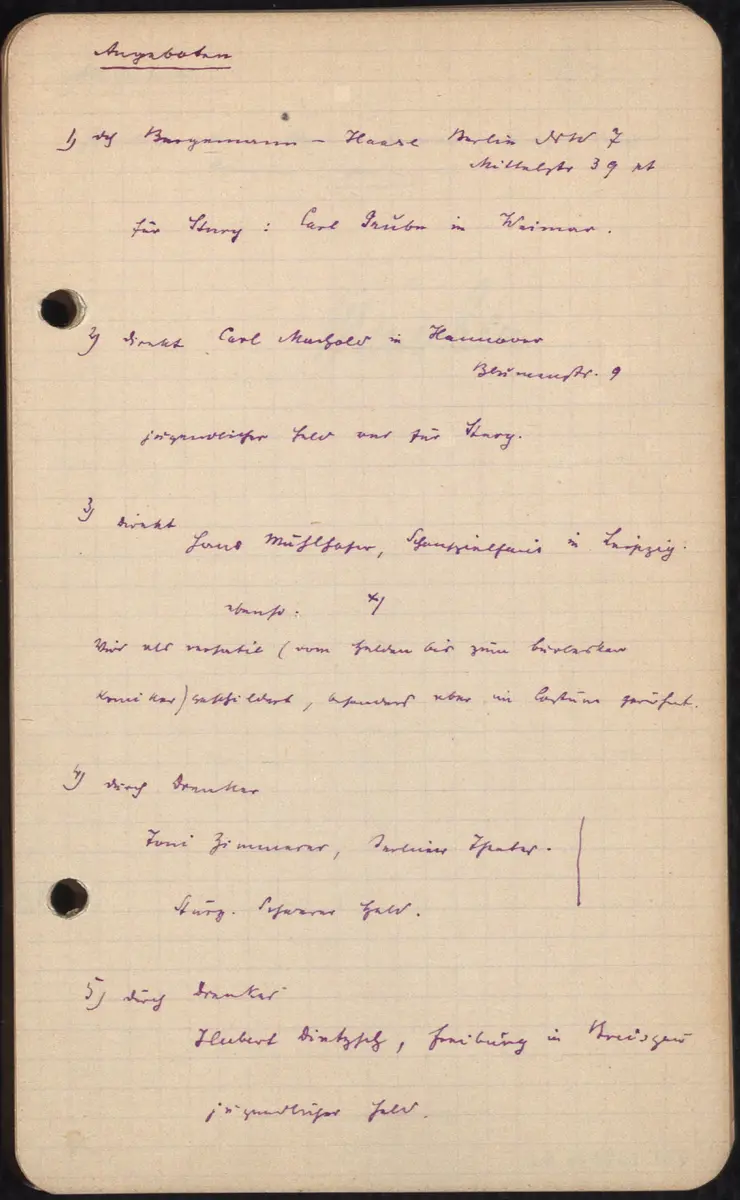 Angeboten
1) dch Bergemann – Haase Berlin NW 7
Mittelstr 39
für Stury : Carl Grube in Weimar.
2) direkt Carl Machold in Hannover
Blumenstr. 9
jugendlicher Held und für Stury.
3) direkt
Hans Mühlhofer, Schauspielhaus in Leipzig.
ebenso. x)
Wird als versatil (vom Helden bis zum burlesken
Komiker) geschildert, besonders aber im Costüm gerühmt.
4) durch Drenker
Toni Zimmerer, Berliner Theater.
Stury. Schwerer Held.
5) durch Drenker
Hubert Dietzsch, Freiburg in Breisgau
jugendlicher Held.